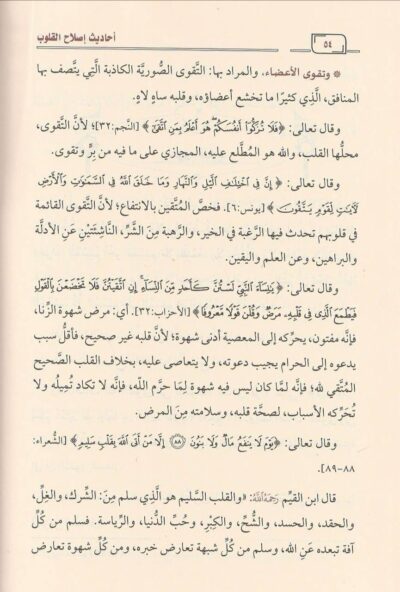 ٥٤
أحاديث إصلاح القلوب
* وتقوى الأعضاء، والمراد بها: التَّقوى الصُّوريَّة الكاذبة الَّتي يتَّصف بها
المنافق، الَّذي كثيرًا ما تخشع أعضاؤه، وقلبه ساهٍ لاهٍ.
وقال تعالى: ﴿فَلَا تُزَكُّوٓا۟ أَنفُسَكُمْ ۖ هُوَ أَعْلَمُ بِمَنِ ٱتَّقَىٰٓ﴾ [النَّجم:٣٢]؛ لأنَّ التَّقوى،
محلُّها القلب، والله هو المُطَّلع عليه، المجازي على ما فيه من بِرٍّ وتقوى.
وقال تعالى: ﴿إِنَّ فِى ٱخْتِلَٰفِ ٱلَّيْلِ وَٱلنَّهَارِ وَمَا خَلَقَ ٱللَّهُ فِى ٱلسَّمَٰوَٰتِ وَٱلْأَرْضِ
لَءَايَٰتٍ لِّقَوْمٍ يَتَّقُونَ﴾ [يونس:٦]. فخصَّ المُتَّقين بالانتفاع؛ لأنَّ التَّقوى القائمة
في قلوبهم تحدث فيها الرَّغبة في الخير، والرَّهبة مِنَ الشَّرِّ، النَّاشئتَيْن عَنِ الأدلَّة
والبراهين، وعن العلم واليقين.
وقال تعالى: ﴿يَٰنِسَآءَ ٱلنَّبِىِّ لَسْتُنَّ كَأَحَدٍ مِّنَ ٱلنِّسَآءِ ۚ إِنِ ٱتَّقَيْتُنَّ فَلَا تَخْضَعْنَ بِٱلْقَوْلِ
فَيَطْمَعَ ٱلَّذِى فِى قَلْبِهِۦ مَرَضٌ وَقُلْنَ قَوْلًا مَّعْرُوفًا﴾ [الأحزاب:٣٢]. أي: مرض شهوة الزِّنا،
فإنَّه مفتون، يحرِّكه إلى المعصية أدنى شهوة؛ لأنَّ قلبه غير صحيح، فأقلُّ سبب
يدعوه إلى الحرام يجيب دعوته، ولا يتعاصى عليه، بخلاف القلب الصَّحيح
المُتَّقي لله؛ فإنَّه لمَّا كان ليس فيه شهوة لِمَا حرَّم الله، فإنَّه لا تكاد تُمِيلُه ولا
تُحَرِّكه الأسباب، لصحَّة قلبه، وسلامته مِنَ المرض.
وقال تعالى: ﴿يَوْمَ لَا يَنفَعُ مَالٌ وَلَا بَنُونَ ﴿٨٨﴾ إِلَّا مَنْ أَتَى ٱللَّهَ بِقَلْبٍ سَلِيمٍ﴾ [الشُّعراء:
٨٨-٨٩].
قال ابن القيِّم رَحِمَهُ اللَّهُ: «والقلب السَّليم هو الَّذي سلم مِنَ: الشِّرك، والغِلِّ،
والحقد، والحسد، والشُّحِّ، والكِبْرِ، وحُبِّ الدُّنيا، والرِّياسة. فسلم من كُلِّ
آفة تبعده عَنِ الله، وسلم من كُلِّ شبهة تعارض خبره، ومن كُلِّ شهوة تعارض